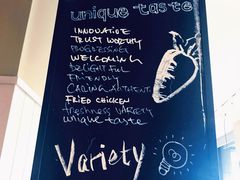 unique taste
INNOVATIVE
TRUST WORTHY
PROGRESSIVE
WELCOMING
DELIGHTFUL
FRIENDLY
CARING
FRIED CHICKEN
FRESHNESS VARIETY
unique taste
Variety